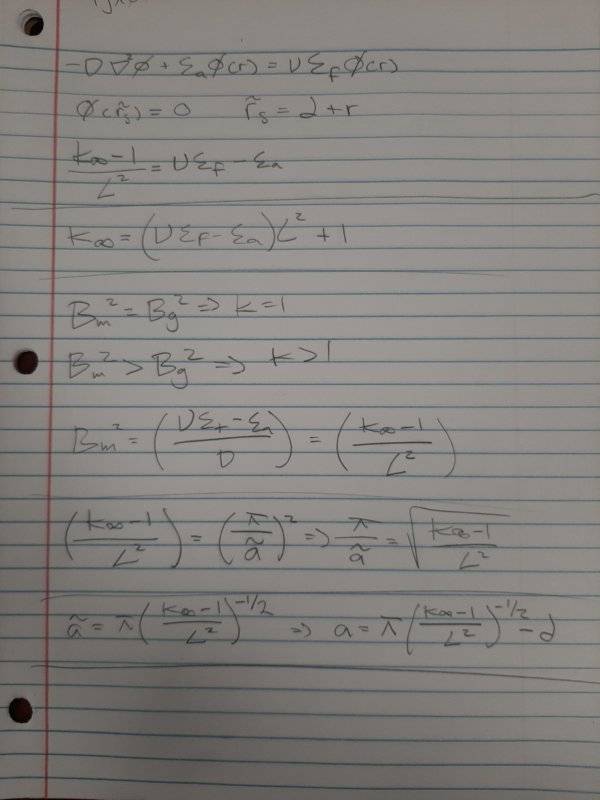 -D∇²φ + Σₐφ(r) = νΣ_f φ(r)
φ(r̃ₛ) = 0 r̃ₛ = d + r
(k∞ - 1)/L² = νΣ_f - Σₐ
k∞ = (νΣ_f - Σₐ)L² + 1
Bₘ² = B_g² => k = 1
Bₘ² > B_g² => k > 1
Bₘ² = ((νΣ_f - Σₐ)/D) = ((k∞ - 1)/L²)
((k∞ - 1)/L²) = (π/ã)² => π/ã = √((k∞ - 1)/L²)
ã = π((k∞ - 1)/L²)^(-1/2) => a = π((k∞ - 1)/L²)^(-1/2) - d